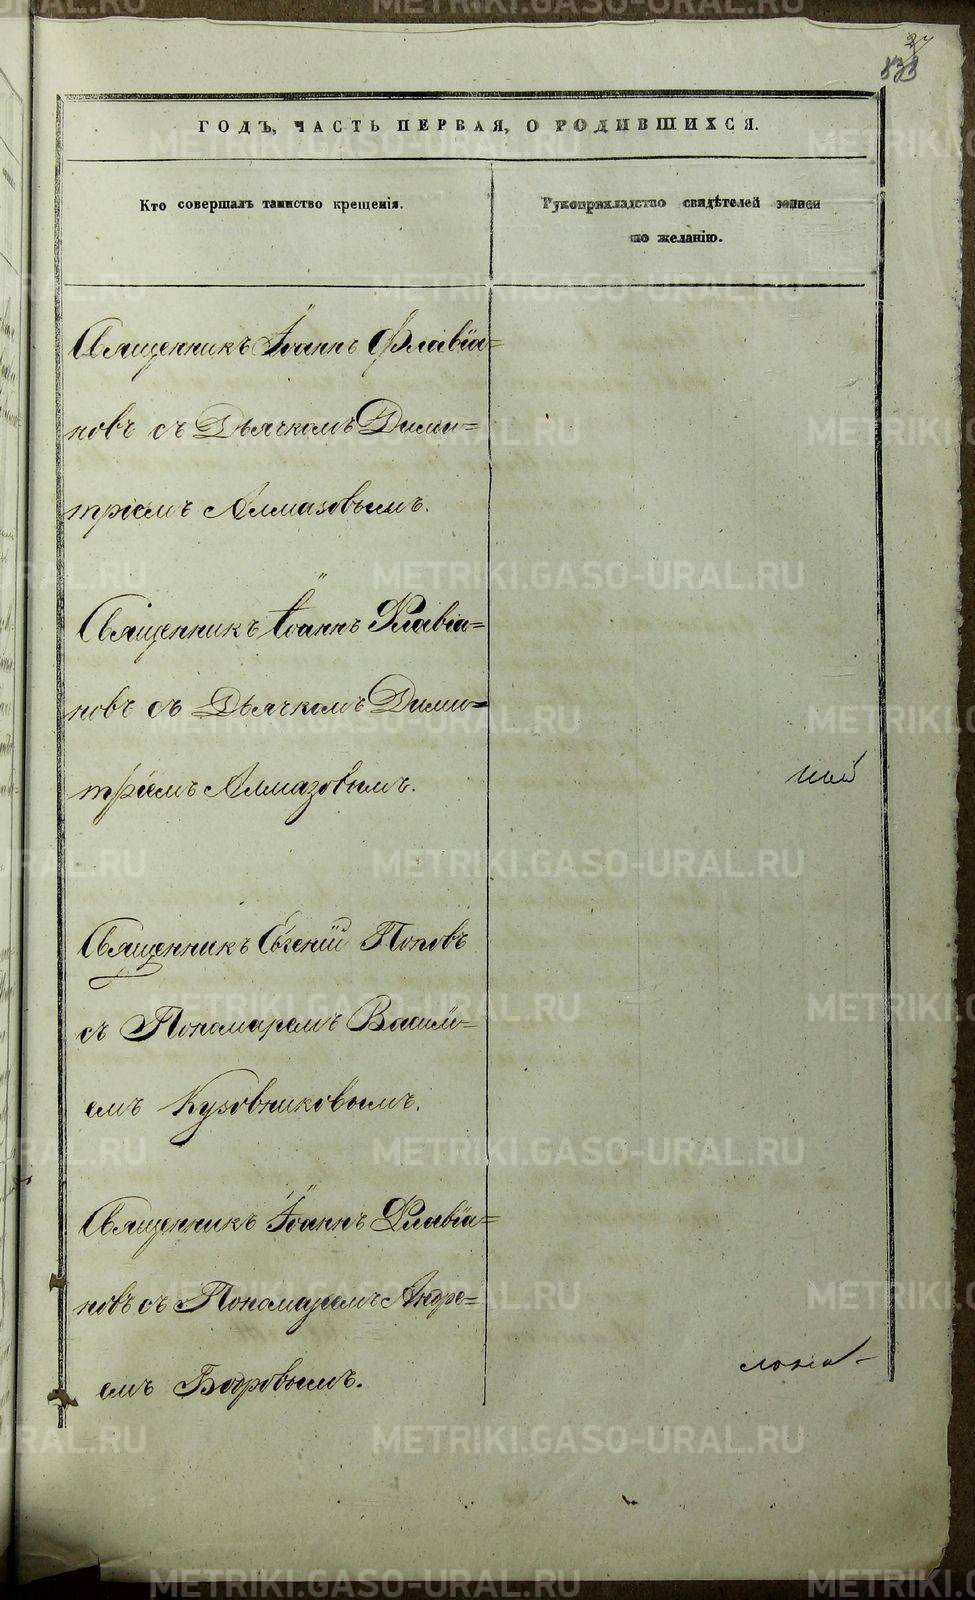 27
ГОДЪ, ЧАСТЬ ПЕРВАЯ, О РОДИВШИХСЯ.
Кто совершалъ таинство крещенія.
Рукоприкладство свидѣтелей записи
по желанію.
Священникъ Іоаннъ Флавіа=
новъ съ Дьячкомъ Дими=
тріемъ Алмазовымъ.
Священникъ Іоаннъ Флавіа=
новъ съ Дьячкомъ Дими=
тріемъ Алмазовымъ.
Священникъ Евгеній Поповъ
съ Пономаремъ Василі=
емъ Кузовниковымъ.
Священникъ Іоаннъ Флавіа=
новъ съ Пономаремъ Андре=
емъ Бодровымъ.
METRIKI.GASO-URAL.RU